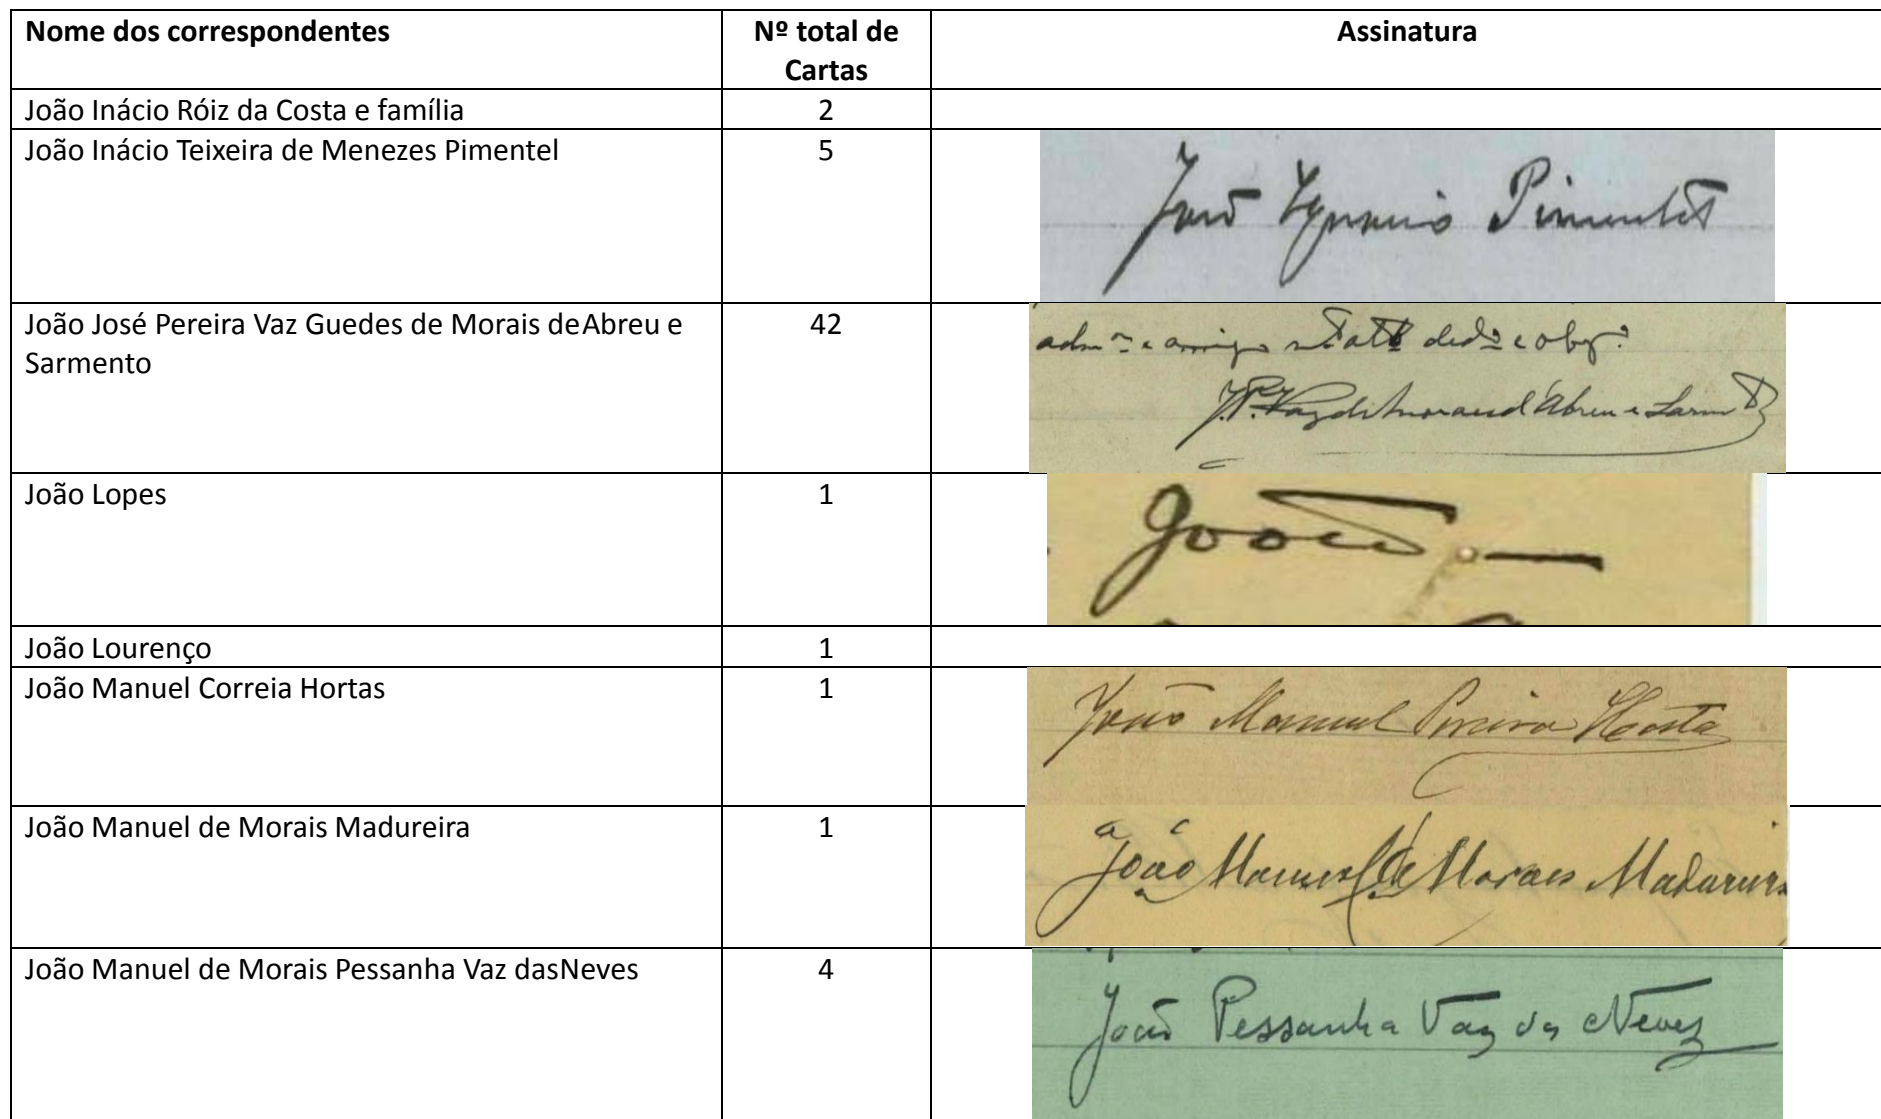 Nome dos correspondentes
Nº total de
Cartas
Assinatura
João Inácio Róiz da Costa e família
2
João Inácio Teixeira de Menezes Pimentel
5
João Ignacio Pimentel
João José Pereira Vaz Guedes de Morais deAbreu e
Sarmento
42
e amigo
J. P. Vaz de Moraes d'Abreu e Sarmto
João Lopes
1
João
João Lourenço
1
João Manuel Correia Hortas
1
João Manuel
João Manuel de Morais Madureira
1
João Manuel de Moraes Madureira
João Manuel de Morais Pessanha Vaz dasNeves
4
João Pessanha Vaz das Neves